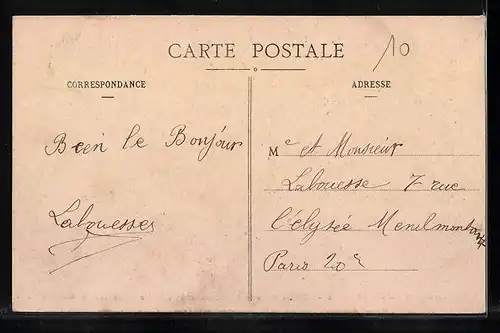 CARTE POSTALE
10
CORRESPONDANCE
Bien le Bonjour
Labouesse
ADRESSE
Me et Monsieur
Labouesse 7 rue
l'élysée Menilmontant
Paris 20e